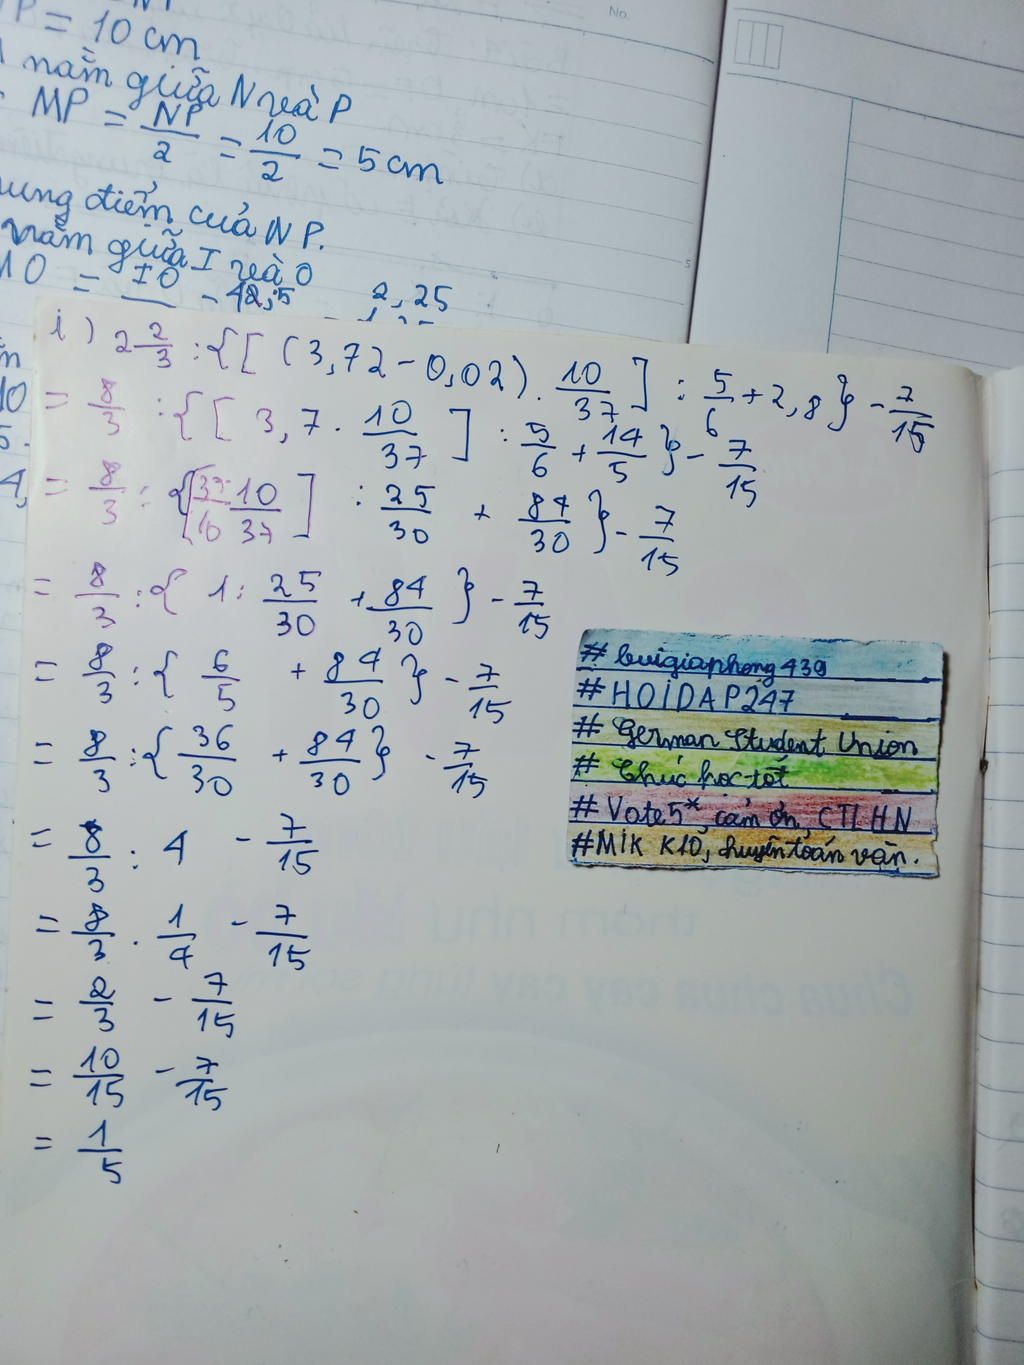 P = 10 cm
nằm giữa N và P
MP = NP/2 = 10/2 = 5 cm
điểm của NP.
nằm giữa I và O
O = IO
2,25
i) 2 2/3 : {[ (3,72 - 0,02) . 10/37 ] : 5/6 + 2,8} - 7/15
= 8/3 : {[ 3,7 . 10/37 ] : 5/6 + 14/5 } - 7/15
= 8/3 : {[ 37/10 10/37 ] : 25/30 + 84/30 } - 7/15
= 8/3 : { 1 : 25/30 + 84/30 } - 7/15
= 8/3 : { 6/5 + 84/30 } - 7/15
= 8/3 : { 36/30 + 84/30 } - 7/15
= 8/3 : 4 - 7/15
= 8/3 . 1/4 - 7/15
= 2/3 - 7/15
= 10/15 - 7/15
= 1/5
# buigiaphong439
# HOIDAP247
# German Student Union
# Chúc học tốt
# Vote 5*, cảm ơn, CTLHN
#MIK K10, chuyên toán văn.
No.